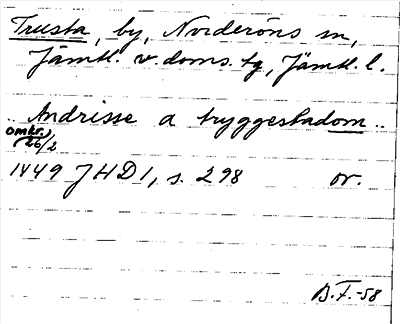 Trusta, by, Norderöns sn,
Jämtl. v. doms. tg, Jämtl. l.
.. Andrisse a tryggestadom ..
omkr.
26/2
1449 JHD 1, s. 298 or.
B.F.-58